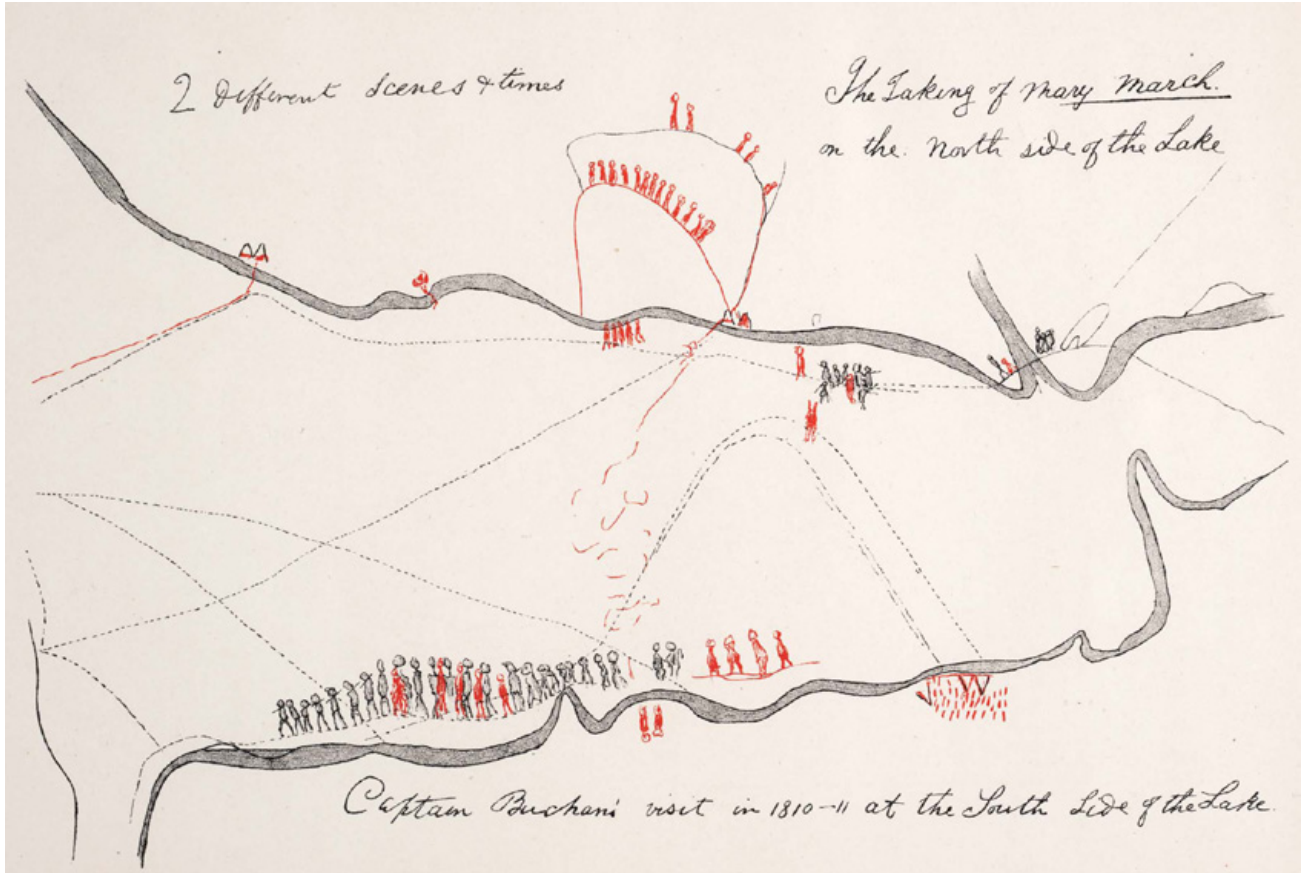 2 Different Scenes & times
The Taking of Mary March.
on the North side of the Lake
Captain Buchan's visit in 1810-11 at the South Side of the Lake.